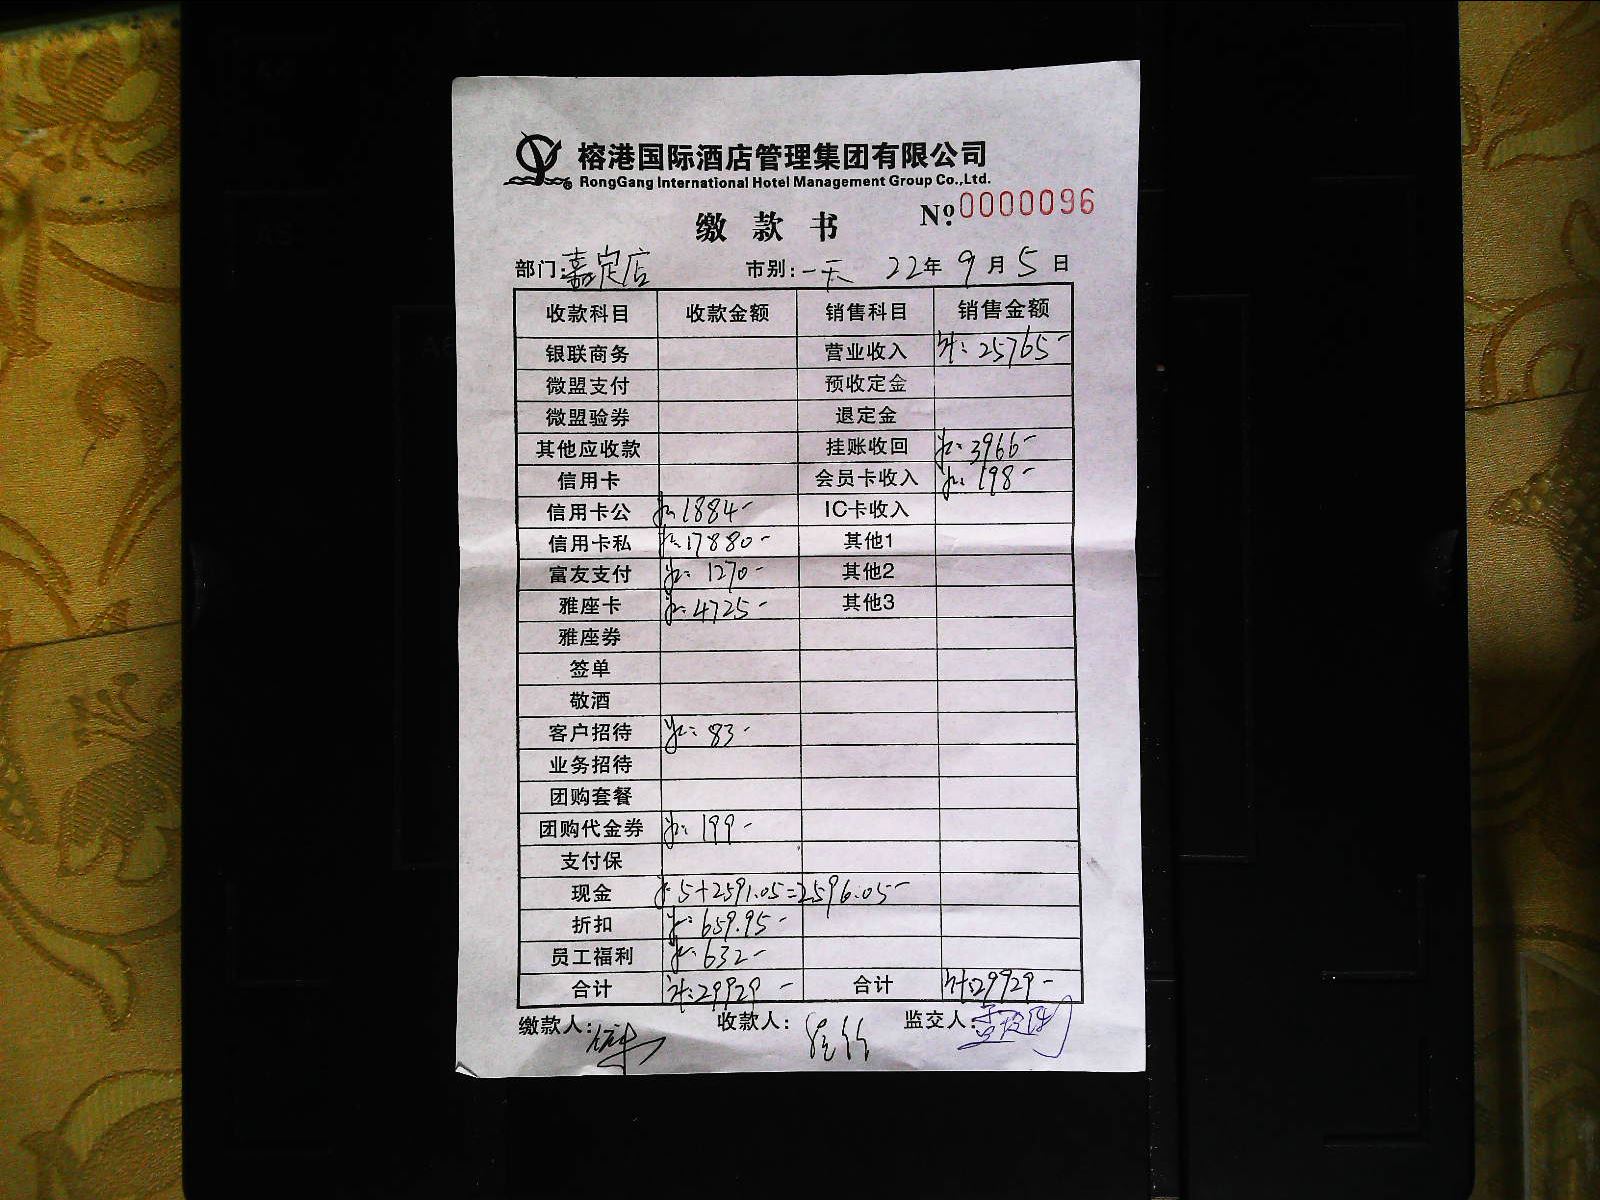 榕港国际酒店管理集团有限公司
RongGang International Hotel Management Group Co.,Ltd.
缴款书 №:0000096
部门:嘉定店 市别:一天 22年9月5日
收款科目 收款金额 销售科目 销售金额
银联商务 营业收入 25765-
微盟支付 预收定金
微盟验券 退定金
其他应收款 挂账收回 3966-
信用卡 会员卡收入 198-
信用卡公 1884- IC卡收入
信用卡私 17880- 其他1
富友支付 1270- 其他2
雅座卡 4725- 其他3
雅座券
签单
敬酒
客户招待 83-
业务招待
团购套餐
团购代金券 199-
支付保
现金 5+2591.05=2596.05-
折扣 659.95-
员工福利 632-
合计 29929- 合计 29929-
缴款人: 收款人: 监交人: